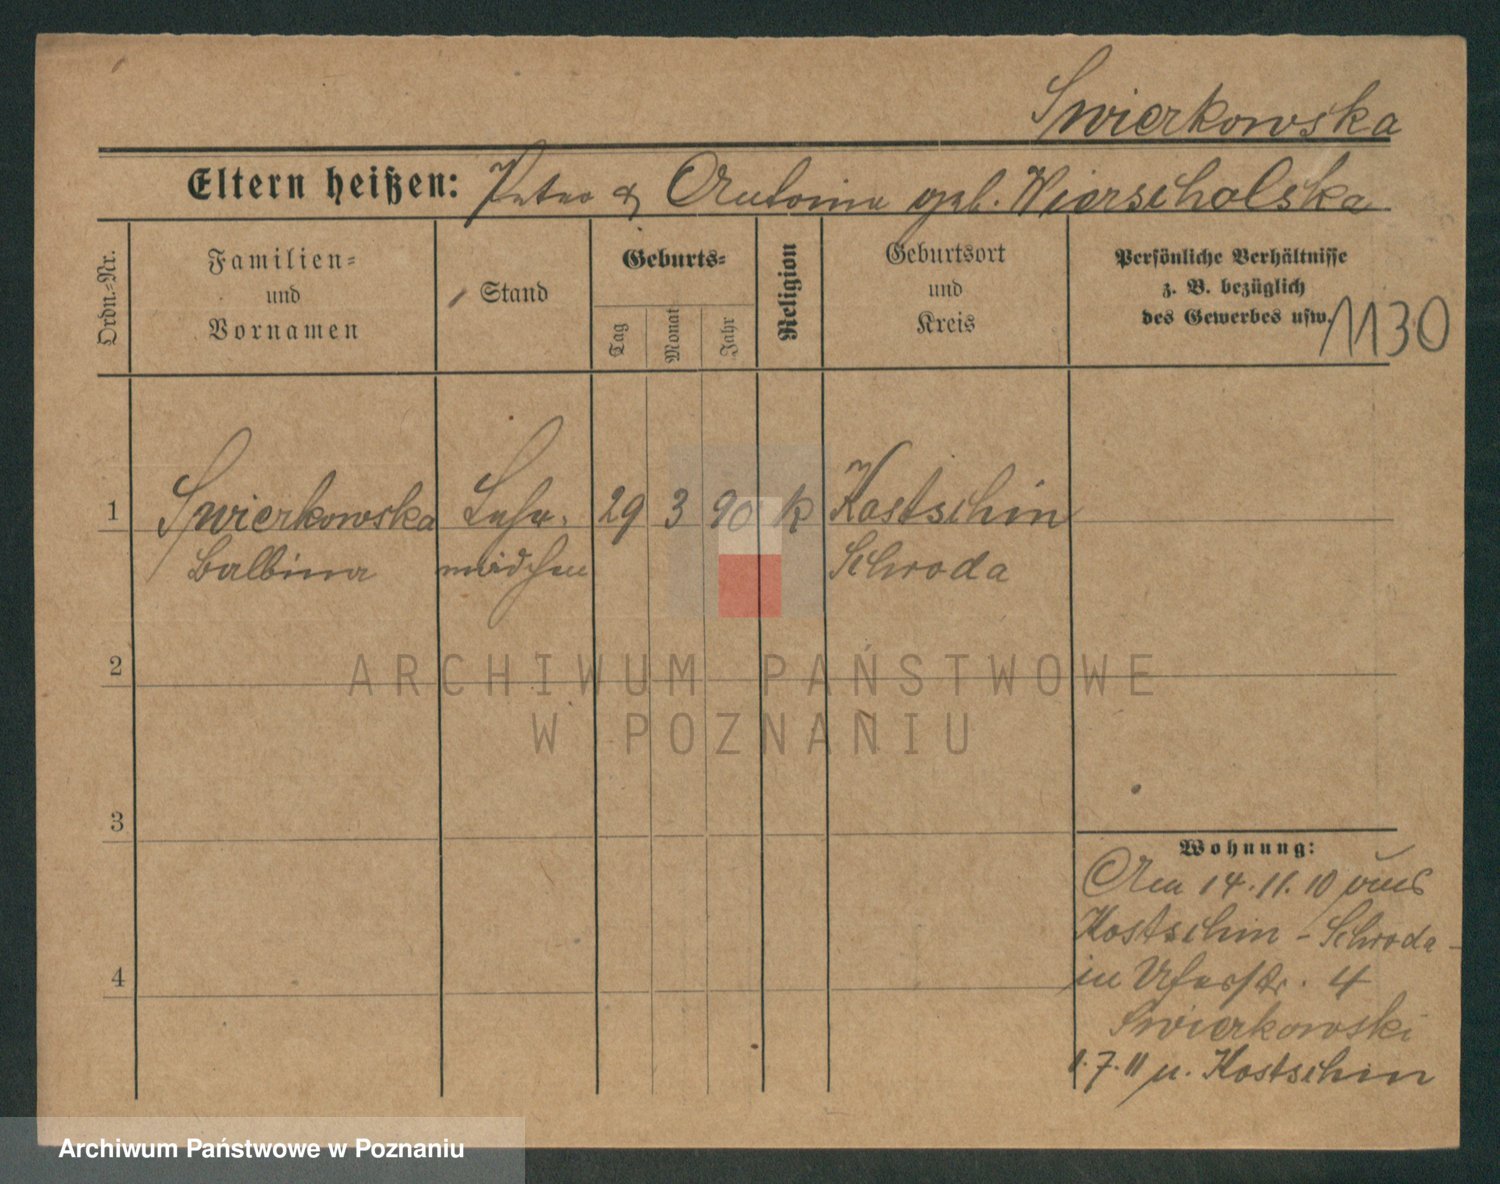 Swierkowska
Eltern heißen: Peter & Antonina geb. Wierscholska
Ordn.-Nr.
Familien-
und
Vornamen
Stand
Geburts-
Tag
Monat
Jahr
Religion
Geburtsort
und
Kreis
Persönliche Verhältnisse
z. B. bezüglich
des Gewerbes usw.
1130
1 Swierkowska Lehr- 29 3 90 k Kostschin
Balbina mädchen Schroda
2
3
4
Wohnung:
Am 14.11.10 aus
Kostschin - Schroda -
in Uferstr. 4
Swierkowski
1.7.11 n. Kostschin
ARCHIWUM PAŃSTWOWE
W POZNANIU
Archiwum Państwowe w Poznaniu